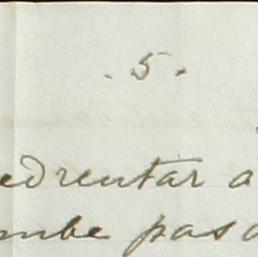 . 5 .
edrentar a
mbe pasa